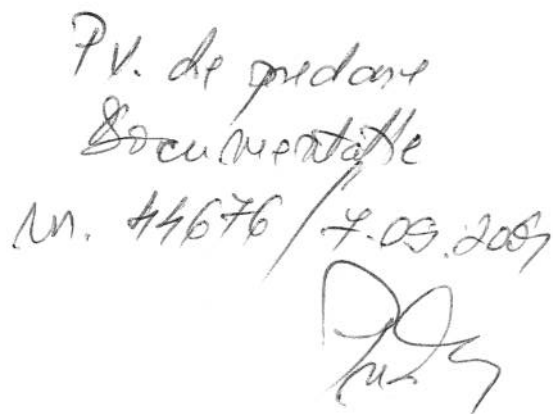 Pv. de predare
Documentatie
nr. 44676 / 7.09.2009